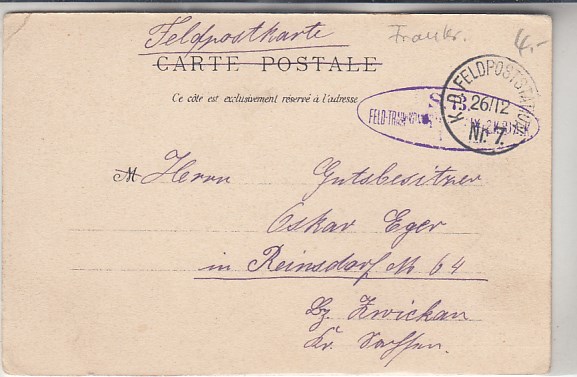 Feldpostkarte
Frankr.
4.-
CARTE POSTALE
Ce côte est exclusivement réservé à l'adresse
K.D. FELDPOSTSTATION
26/12
Nr. 7.
S. B.
FELD-TRAIN-
M Herrn Gutsbesitzer
Oskar Eger
in Reinsdorf No 64
Bz. Zwickau
Kr. Sachsen.